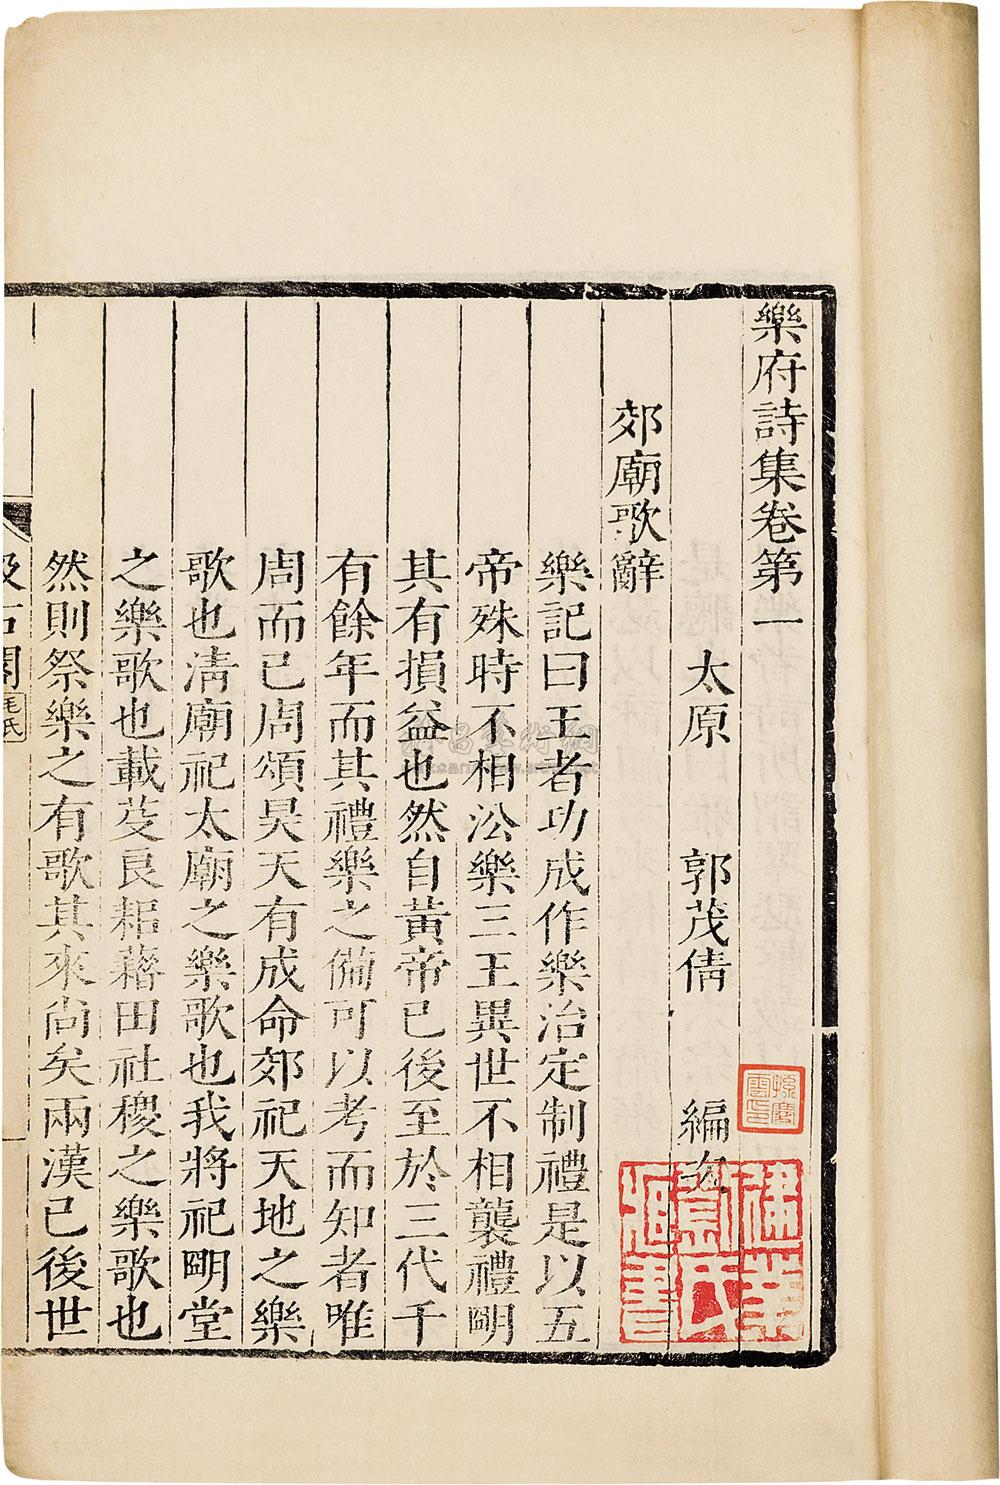 樂府詩集卷第一
太原 郭茂倩 編次
郊廟歌辭
樂記曰王者功成作樂治定制禮是以五
帝殊時不相㳂樂三王異世不相襲禮明
其有損益也然自黃帝已後至於三代千
有餘年而其禮樂之備可以考而知者唯
周而已周頌昊天有成命郊祀天地之樂
歌也淸廟祀太廟之樂歌也我將祀明堂
之樂歌也載芟良耜藉田社稷之樂歌也
然則祭樂之有歌其來尚矣兩漢已後世
汲古閣
毛氏